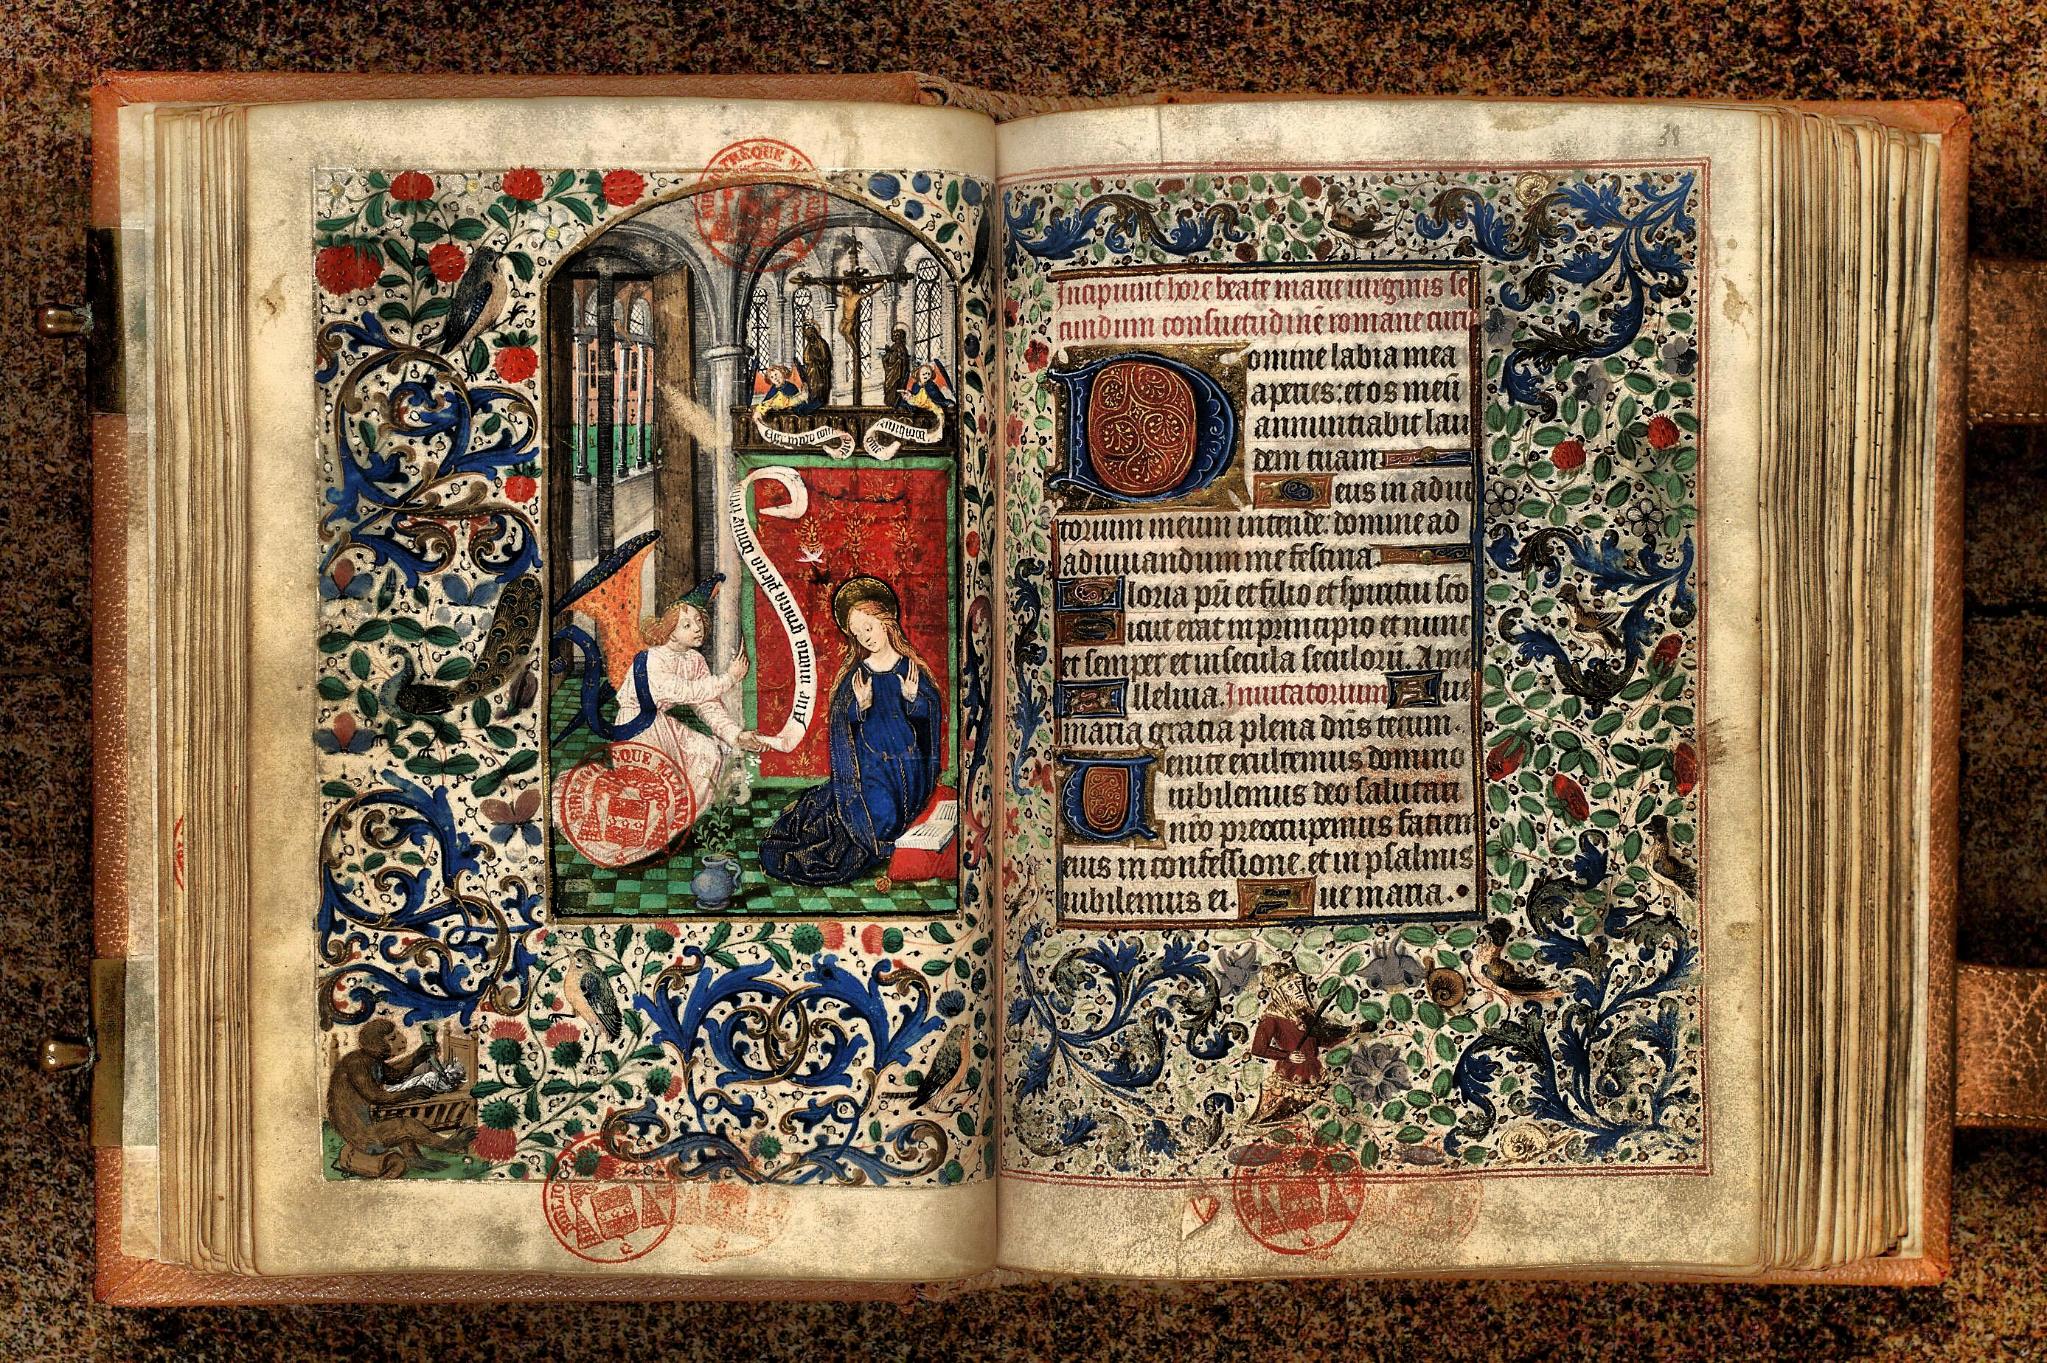 BIBLIOTHEQUE MAZARINE
Ave maria gracia plena
BIBLIOTHEQUE MAZARINE
38
Incipiunt hore beate marie virginis se
cundum consuetudinē romane curie
Domine labia mea
aperies: et os meū
annuntiabit lau
dem tuam
Deus in adiu
torium meum intende: domine ad
adiuuandum me festina.
Gloria pr̄i et filio et spiritui sc̄o
Sicut erat in principio et nunc
et semper et in secula seculorū. Ame
Alleluia. Inuitatorium Aue
maria gratia plena dn̄s tecum.
Uenite exultemus domino
iubilemus deo salutari
nr̄o preoccupemus faciem
eius in confessione. et in psalmis
iubilemus ei. Aue maria.